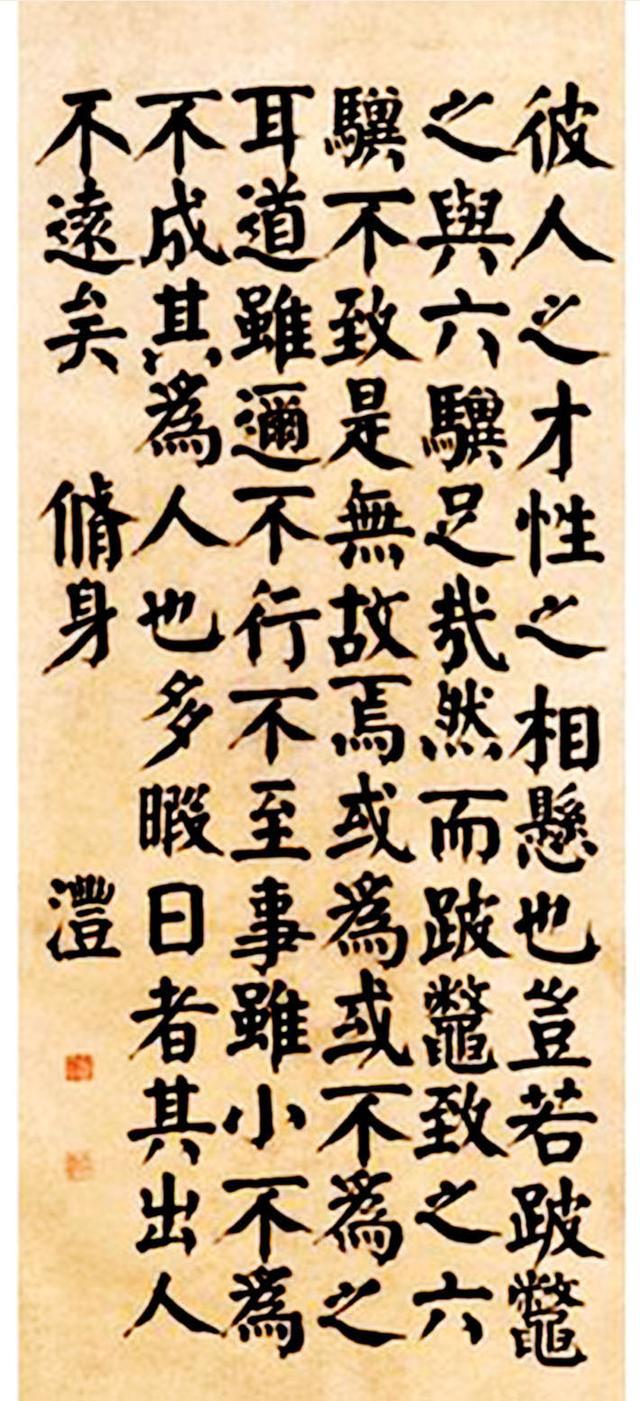 彼人之才性之相懸也豈若跛鼈
之與六驥足㢤然而跛鼈致之六
驥不致是無故焉或為或不為之
耳道雖邇不行不至事雖小不為
不成其為人也多暇日者其出人
不遠矣 脩身 澧